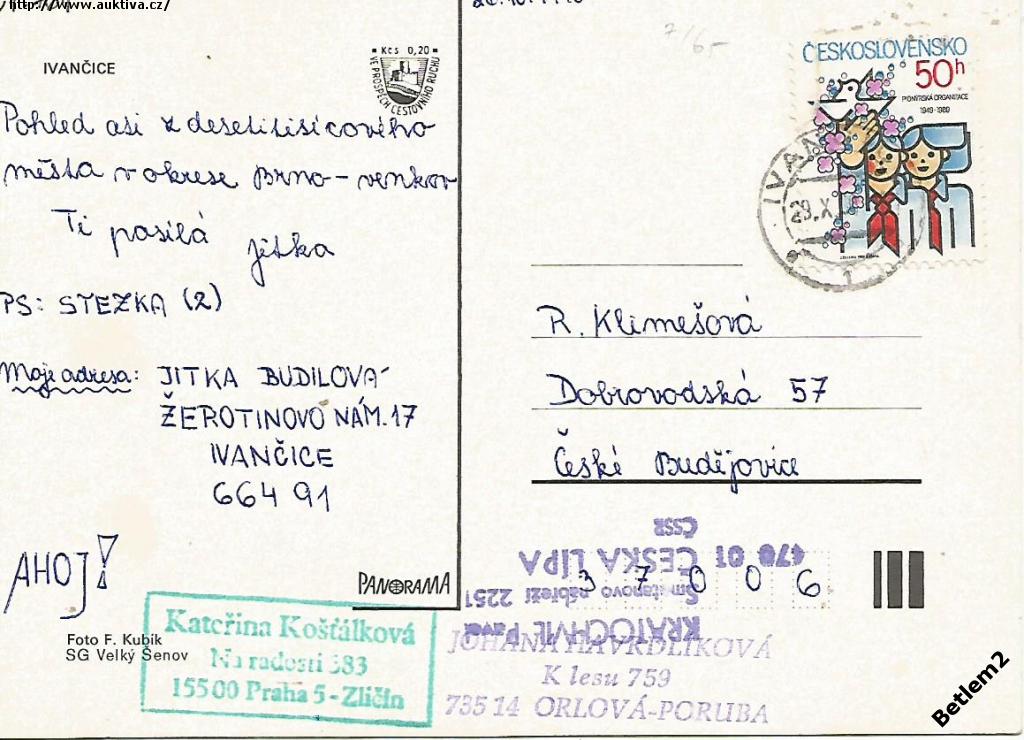 http://www.auktiva.cz/
IVANČICE
Kčs 0,20
VE PROSPĚCH CESTOVNÍHO RUCHU
Pohled asi z desetitisícového
města v okrese Brno-venkov
Ti posílá Jitka
PS: STEZKA (2)
Moje adresa: JITKA BUDILOVÁ
ŽEROTINOVO NÁM. 17
IVANČICE
664 91
AHOJ!
Foto F. Kubík
SG Velký Šenov
PANORAMA
Kateřina Košťálková
Na radosti 383
155 00 Praha 5-Zličín
7/65
ČESKOSLOVENSKO
50h
PIONÝRSKÁ ORGANIZACE
1949-1989
IVAN
29.X
1
R. Klimešová
Dobrovodská 57
České Budějovice
37006
KRATOCHVÍL Pavel
Smetanovo nábřeží 2251
470 01 ČESKÁ LÍPA
ČSSR
JOHANA HAVRDLÍKOVÁ
K lesu 759
735 14 ORLOVÁ-PORUBA
Betlem2